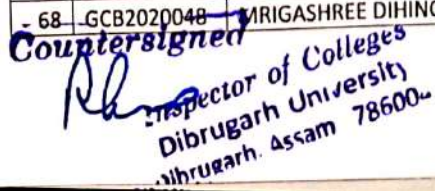 68 GCB2020048 MRIGASHREE DIHING
Countersigned
Inspector of Colleges
Dibrugarh University
Dibrugarh. Assam 78600